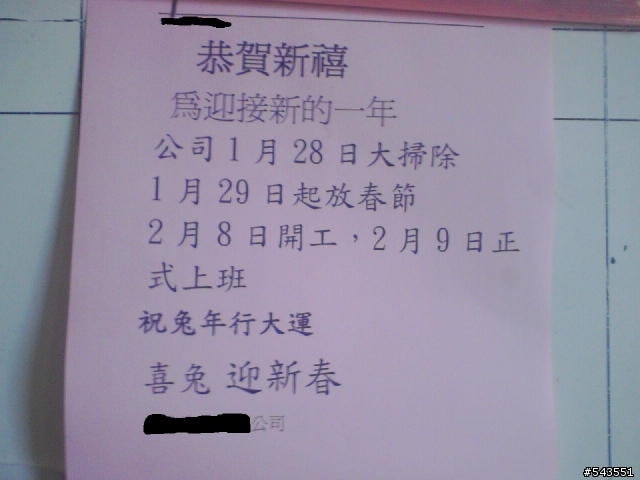 恭賀新禧
為迎接新的一年
公司1月28日大掃除
1月29日起放春節
2月8日開工，2月9日正
式上班
祝兔年行大運
喜兔 迎新春
公司
#543551